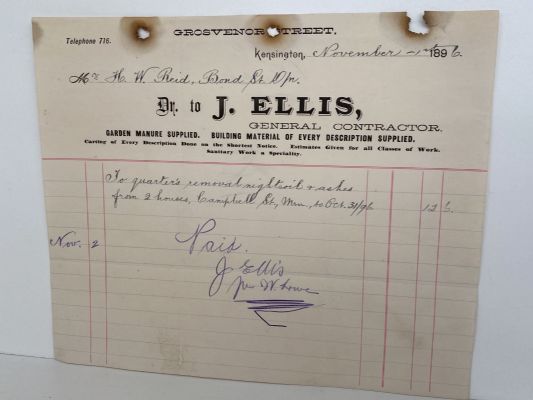 GROSVENOR STREET.
Telephone 716.
Kensington, November 1 1896.
Mr H. W. Reid, Bond St D/n.
Dr. to J. ELLIS,
GENERAL CONTRACTOR.
GARDEN MANURE SUPPLIED. BUILDING MATERIAL OF EVERY DESCRIPTION SUPPLIED.
Carting of Every Description Done on the Shortest Notice. Estimates Given for all Classes of Work.
Sanitary Work a Speciality.
To quarter's removal nightsoil & ashes
from 2 houses, Campbell St, to Oct. 31/96 12 6
Nov. 2 Paid.
J Ellis
per W. Lowe